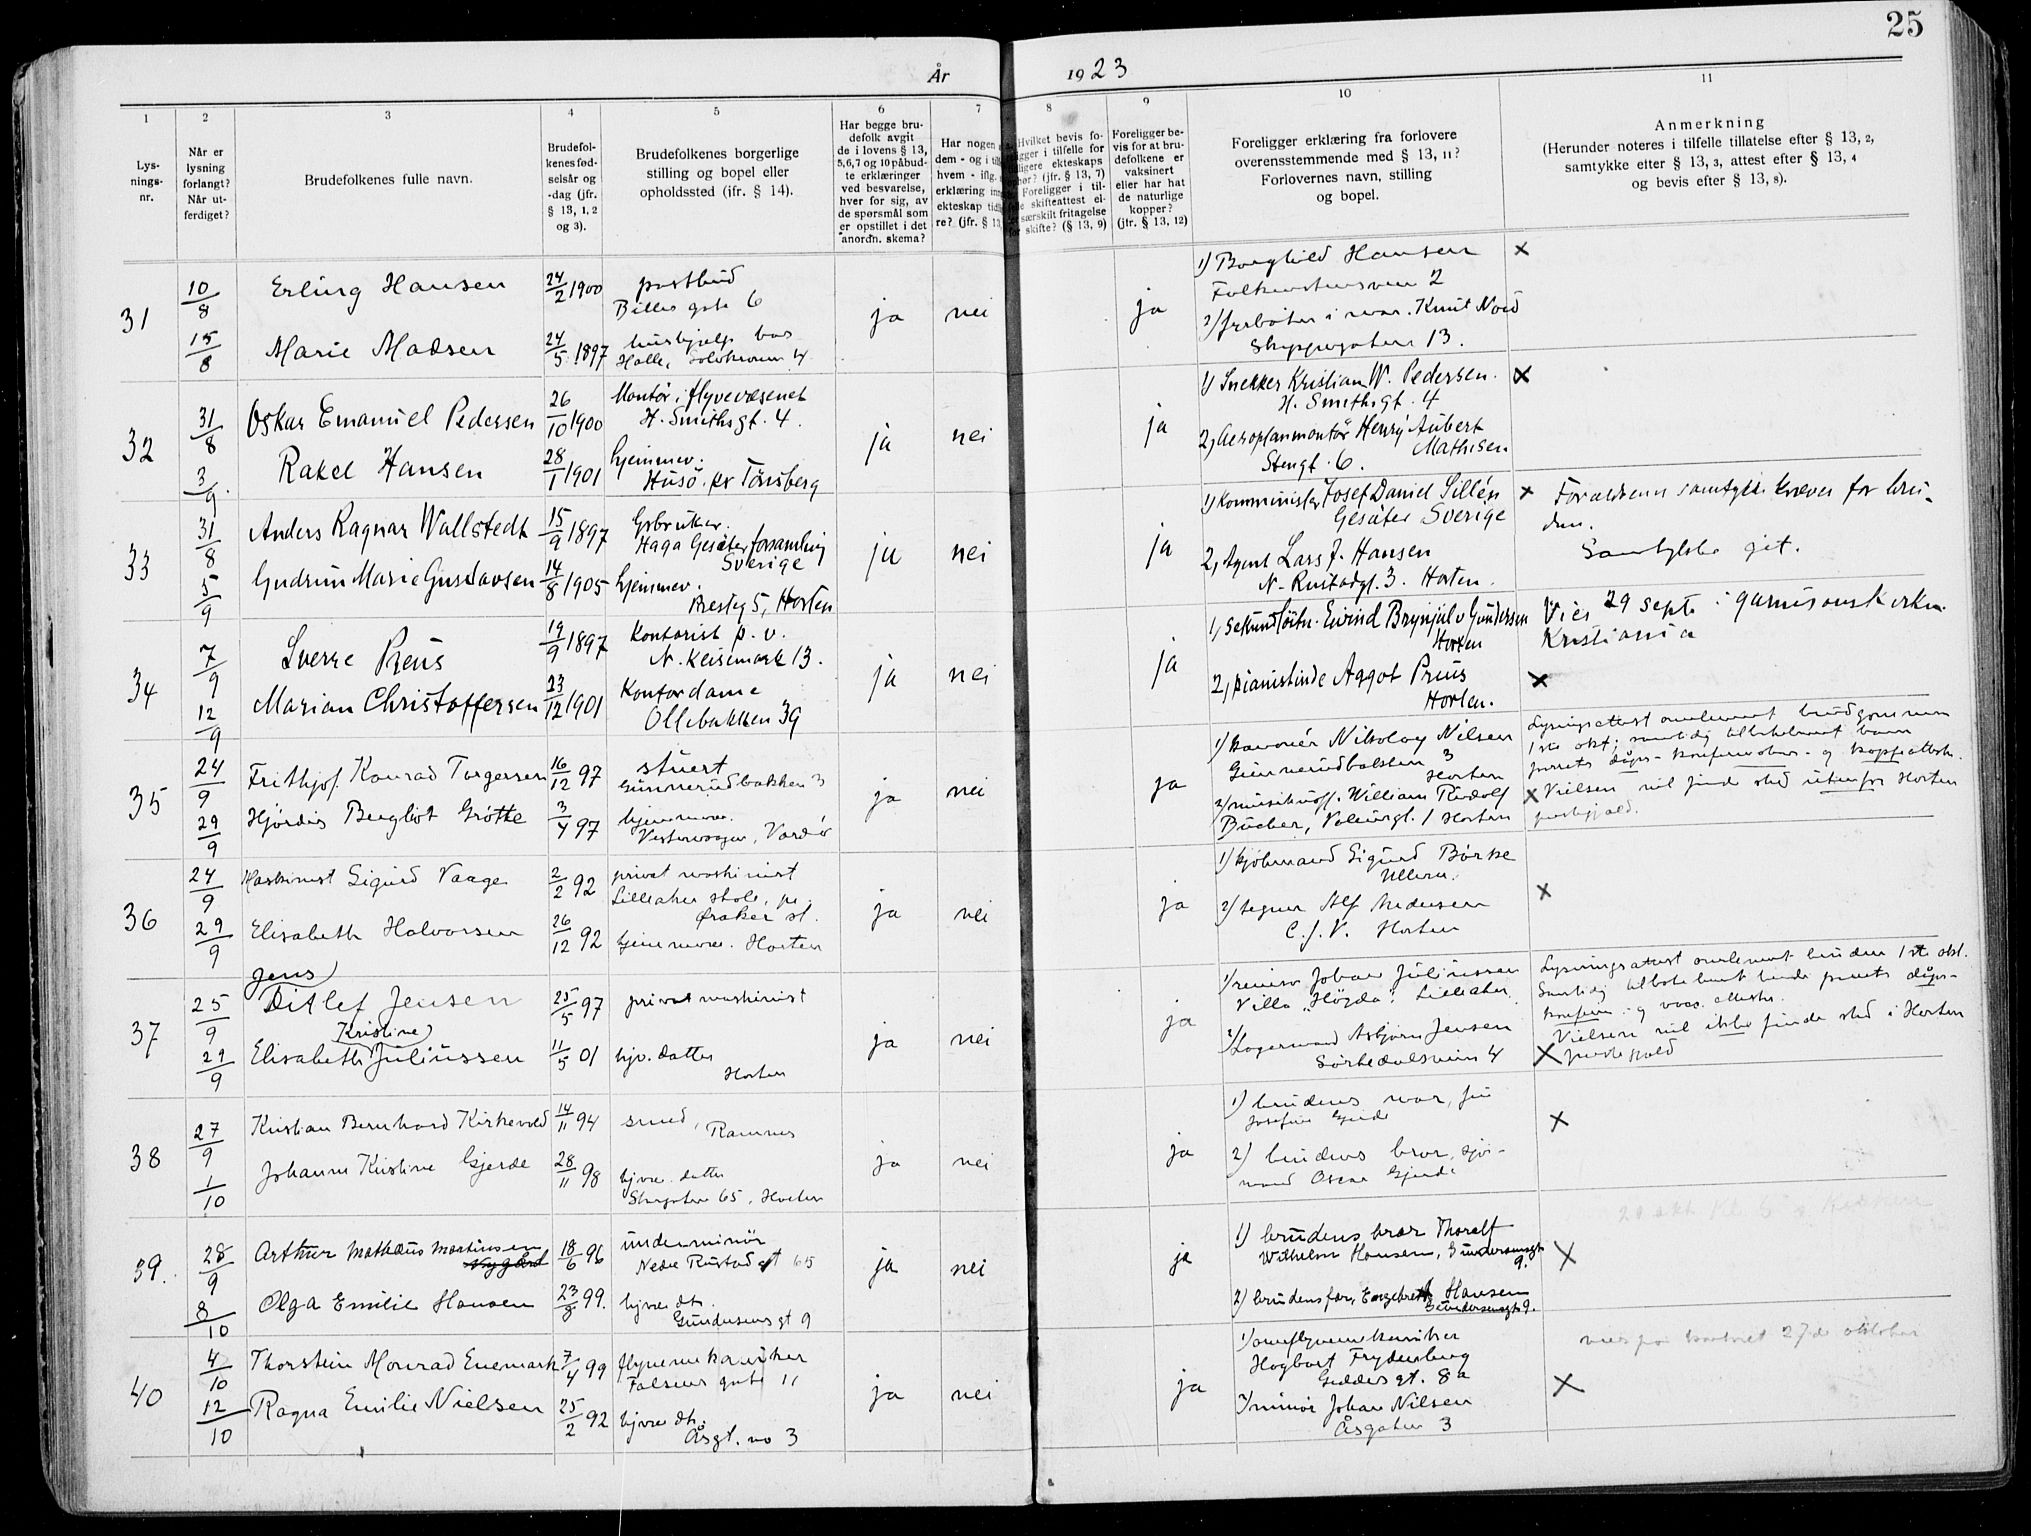 25
År 1923
1
2
3
4
5
6
7
8
9
10
11
Lys-
nings-
nr.
Når er
lysning
forlangt?
Når ut-
ferdiget?
Brudefolkenes fulle navn.
Brudefol-
kenes fød-
selsår og
-dag (jfr.
§ 13, 1, 2
og 3).
Brudefolkenes borgerlige
stilling og bopel eller
opholdssted (jfr. § 14).
Har begge bru-
defolk avgit
de i lovens § 13,
5, 6, 7 og 10 påbud-
te erklæringer
ved besvarelse,
hver for sig, av
de spørsmål som
er opstillet i det
anordn. skema?
Har nogen
dem - og i
hvem - iflg.
erklæring
ekteskap
re? (jfr. § 13,
Hvilket bevis fo-
i tilfelle for
ekteskaps
(jfr. § 13, 7)
Foreligger i til-
skifteattest el-
særskilt fritagelse
skifte? (§ 13, 9)
Foreligger be-
vis for at bru-
defolkene er
vaksinert
eller har hat
de naturlige
kopper?
(jfr. § 13, 12)
Foreligger erklæring fra forlovere
overensstemmende med § 13, 11?
Forlovernes navn, stilling
og bopel.
Anmerkning
(Herunder noteres i tilfelle tillatelse efter § 13, 2,
samtykke efter § 13, 3, attest efter § 13, 4
og bevis efter § 13, 8).
31
10/8
15/8
Erling Hansen
Marie Madsen
24/2 1900
24/5 1897
postbud
Billes gate 6
hushjelp hos
Halle,
ja
nei
ja
1) Borghild Hansen
2
2) fyrbøter i mar. Knut Nord
Skippergaten 13.
×
32
31/8
3/9.
Oskar Emanuel Pedersen
Rakel Hansen
26/10 1900
28/1 1901
Montør i flyvevæsenet
H. Smithsgt. 4.
hjemmev.
Husö. pr Tönsberg
ja
nei
ja
1) Snekker Kristian W. Pedersen.
H. Smithsgt. 4
2, Aeroplanmontör Henry Aubert
Mathisen
Stengt. 6.
×
33
31/8
5/9
Anders Ragnar Wallstedt
Gudrun Marie Gustavsen
15/9 1897
14/8 1905
Gbruker.
Haga Gesäter forsamling
Sverige
hjemmev.
Presteg 5, Horten
ja
nei
ja
1) Kommunister Josef Daniel Sillén
Gesäter Sverige
2, Agent Lars J. Hansen
N. Rustadgt. 3. Horten.
× Forældrenes samtykke kræves for bru-
den.
Samtykke git.
34
7/9
12/9
Sverre Preus
Marian Christoffersen
19/9 1897
23/12 1901
Kontorist p. v.
N. Keisemark 13.
Kontordame
Ollebakken 39
ja
nei
ja
1, Sekundløitn. Eivind Brynjulv Gundersen
Horten
2, pianistinde Aagot Preus
Horten.
Vies 29 septr i garnisonskirken
Kristiania
×
35
24/9
29/9
Frithjof Konrad Torgersen
Hjørdis Bergliot Grøtte
16/12 97
3/4 97
stuert
Gunnerudbakken 3
hjemmev.
Vestervaagen, Vardø
ja
nei
ja
1) Nikolay Nilsen
Gunnerudbakken 3
Horten
2) William Rudolf
Bücher, 1 Horten
Lysningsattest overlevert brudgommen
1ste okt; samtidig tilbakelevert barn
parrets dåps- konfirmations- og koppeattester.
× Vielsen vil finde sted utenfor Horten
prestegjæld.
36
24/9
29/9
Maskinist Sigurd Vaage
Elisabeth Halvorsen
2/2 92
26/12 92
privat maskinist
Lilleaker skole, pr.
Øraker st.
hjemmev. Horten
ja
nei
ja
1) kjøbmand Sigurd Børke
Ullern.
2) tegner Alf Andersen
C. J. V. Horten
×
37
25/9
29/9
Jens
Ditlef Jensen
Kristine
Elisabeth Juliussen
25/5 97
11/5 01
privat maskinist
hjv. datter
Horten
ja
nei
ja
1) revisor Johan Juliussen
Villa "Høgda" Lilleaker
2) Lagermand Asbjørn Jensen
Sørkedalsveien 4
Lysningsattest overlevert bruden 1ste okt.
Samtidig tilbakelevert brudeparrets dåps-
konfirm. og vacc. attester.
Vielsen vil ikke finde sted i Horten
× prestegjæld
38
27/9
1/10
Kristian Bernhard Kirkevold
Johanne Kristine Gjerde
14/11 94
28/11 98
smed,
Ramnes
hjvær. datter
Storgaten 65, Horten
ja
nei
ja
1) brudens mor, fru
Josefine Gjerde
2) brudens bror, sjø-
mand Oscar Gjerde
×
39.
28/9
8/10
Arthur Mathæus Martinsen
Nygård
Olga Emilie Hansen
18/6 96
23/8 99.
underminör
Nedre Rustad gt 65
hjvær. dtr.
Gundersens gt 9
ja
nei
ja
1) brudens bror Thoralf
Wilhelm Hansen, Gundersensgt
9.
2) brudens far, Engebret Hansen
Gundersensgt 9.
20 okt Kl 5 i Kirken
×
40
4/10
12/10
Thorstein Monrad Enemark
Ragna Emilie Nielsen
7/4 99
25/2 92
flyvemekaniker
Falsens gate 11
hjvær. dtr.
Åsgt. no 3
ja
nei
ja
1) overflyvemekaniker
Hagbart Frydenberg
Geddes gt. 8a
2) minør Johan Nilsen
Åsgaten 3
vies på kontoret 27de oktober
×